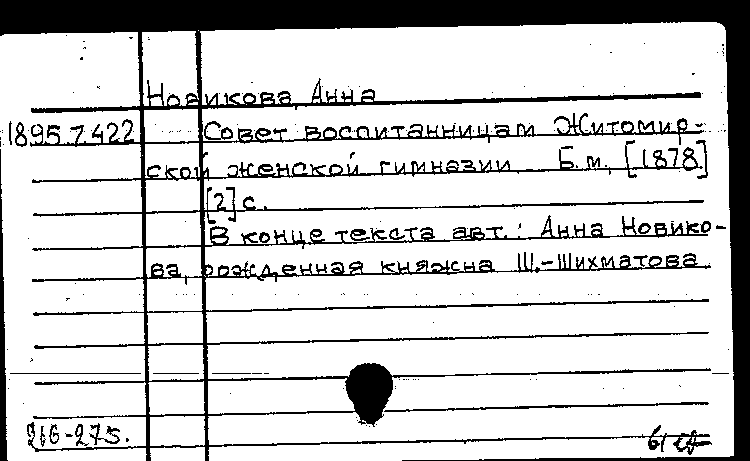 Новикова, Анна
1895.7.422 Совет воспитанницам Житомир-
ской женской гимназии. Б.м., [1878]
[2] с.
В конце текста авт.: Анна Новико-
ва, рожденная княжна Ш.-Шихматова.
216-275.